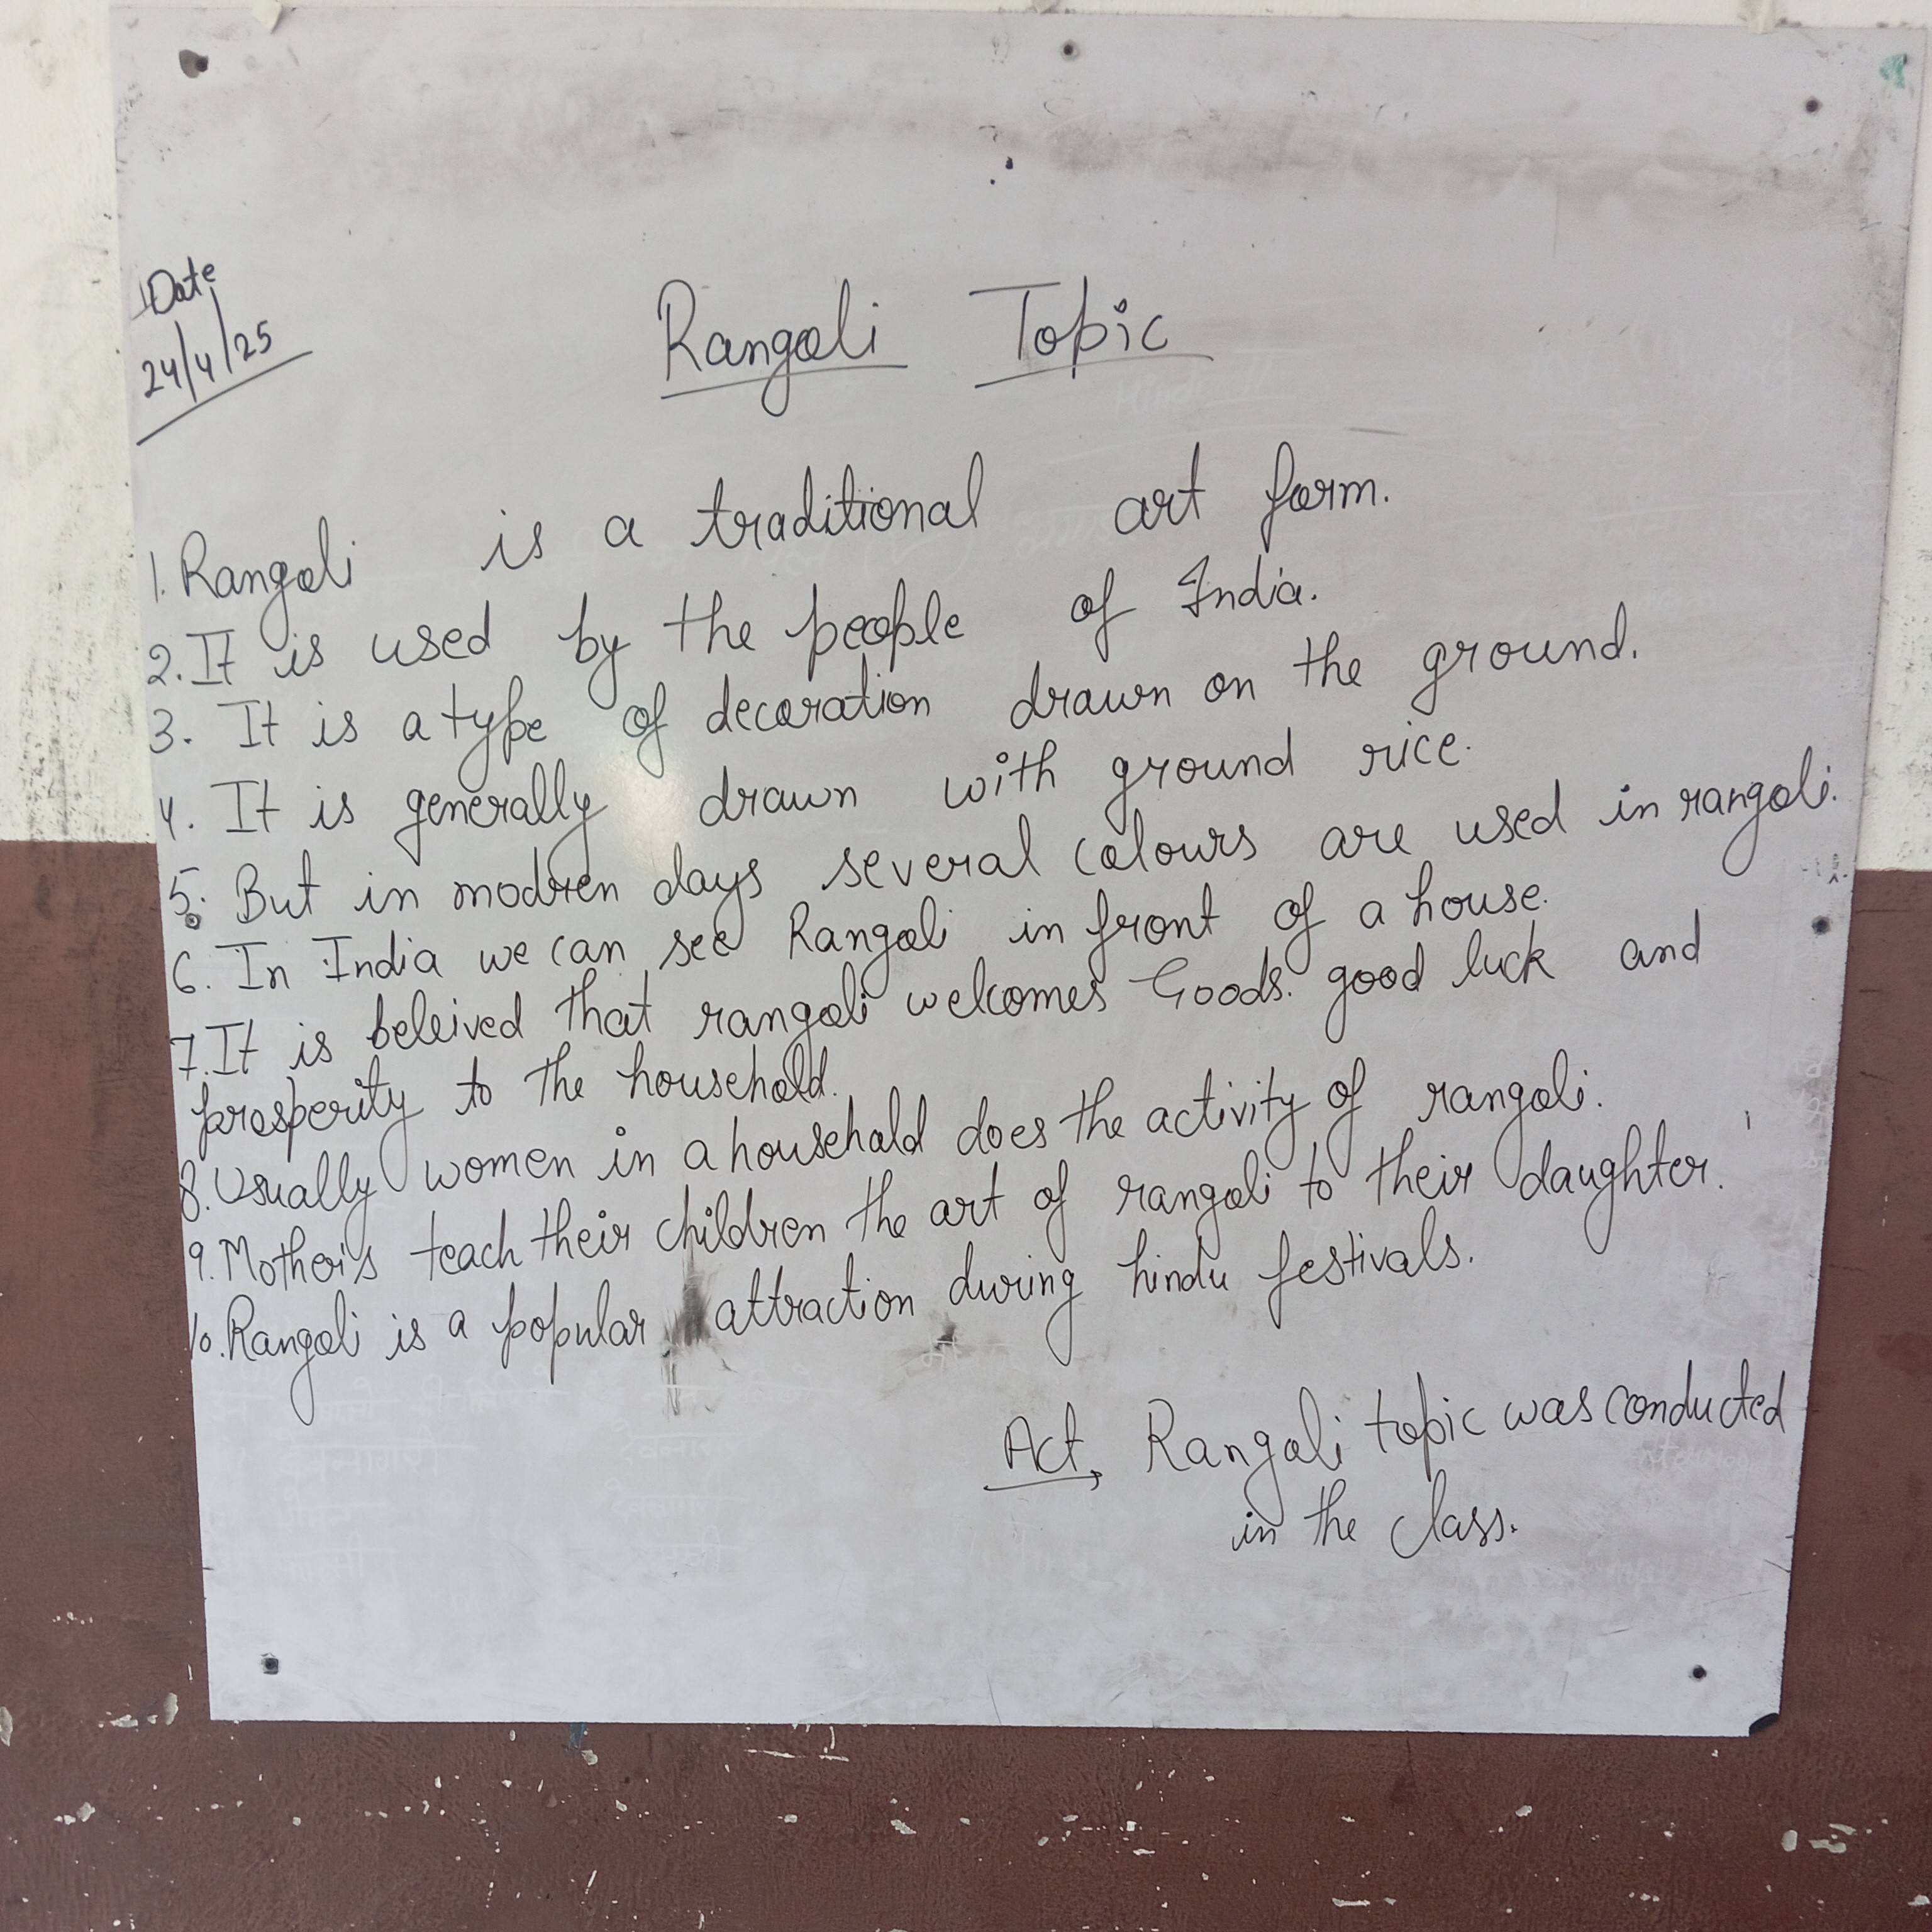 Date
24/4/25
Rangoli Topic
1. Rangoli is a traditional art form.
2. It is used by the people of India.
3. It is a type of decoration drawn on the ground.
4. It is generally drawn with ground rice.
5. But in modren days several colours are used in rangoli.
6. In India we can see Rangoli in front of a house.
7. It is beleived that rangoli welcomes Goods. good luck and
prosperity to the household.
8. Usually women in a household does the activity of rangoli.
9. Mother's teach their children the art of rangoli to their daughter.
10. Rangoli is a popular attraction during hindu festivals.
Act, Rangoli topic was conducted
in the class.